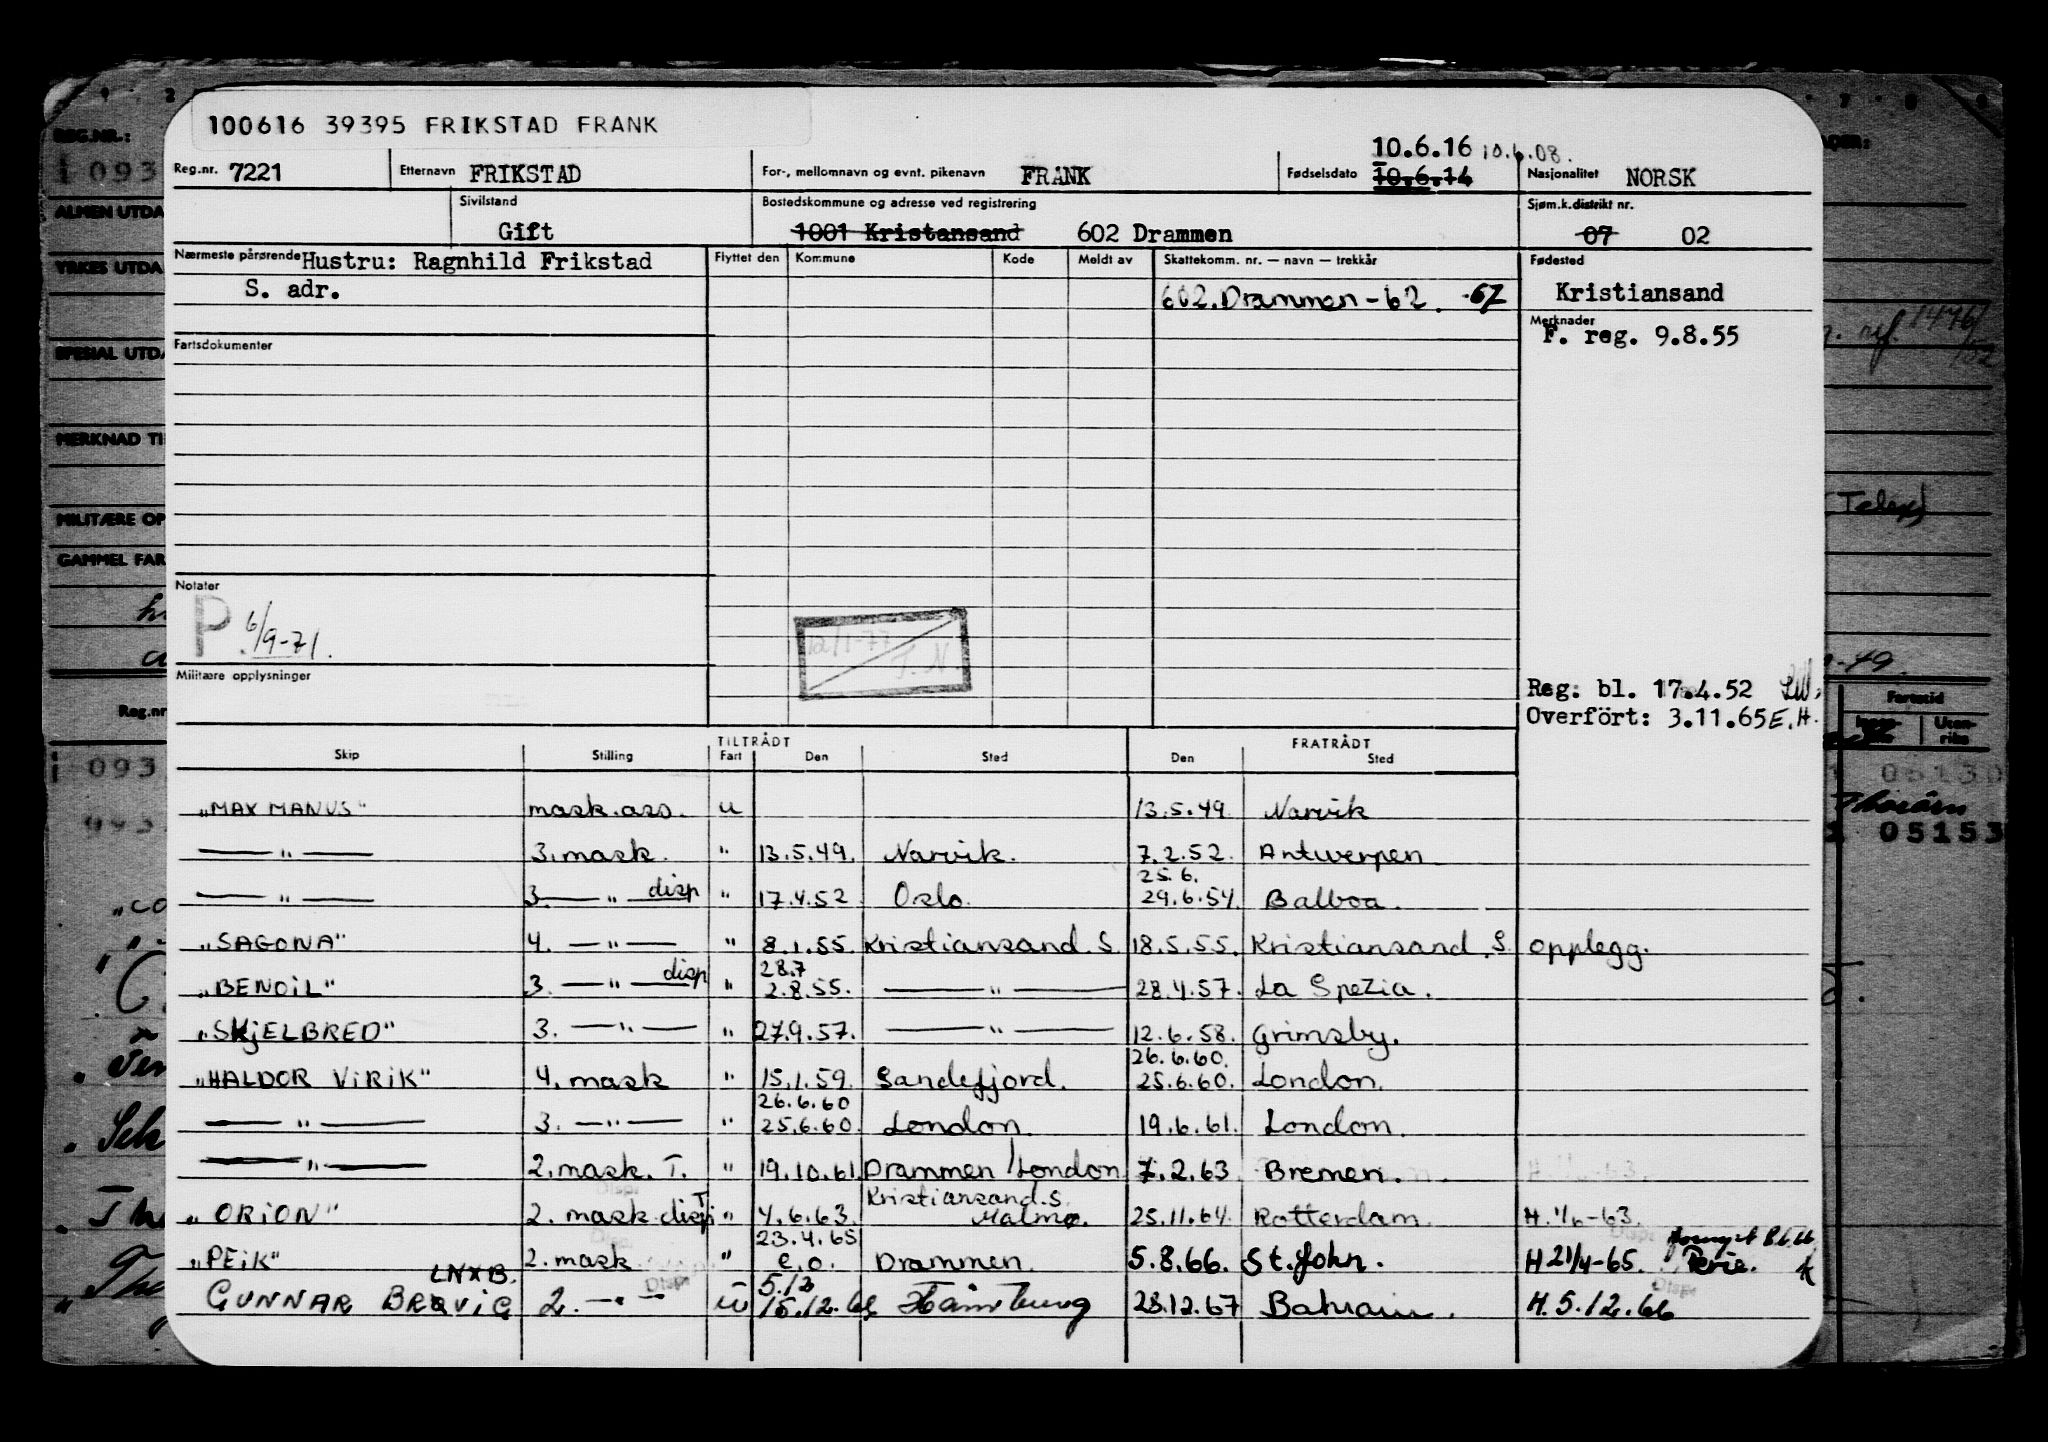 100616 39395 FRIKSTAD FRANK
10.6.16 10.6.08.
Reg.nr. 7221 Etternavn FRIKSTAD For-, mellomnavn og evnt. pikenavn FRANK Fødselsdato 10.6.14 Nasjonalitet NORSK
Sivilstand Bostedskommune og adresse ved registrering Sjøm.k.distrikt nr.
Gift 1001 Kristansand 602 Drammen 07 02
Nærmeste pårørende Hustru: Ragnhild Frikstad Flyttet den Kommune Kode Meldt av Skattekomm. nr. — navn — trekkår Fødested
S. adr. 602. Drammen - 62. -67 Kristiansand
Merknader
F. reg. 9.8.55
Fartsdokumenter
Notater
P. 6/9-71.
12/1-77
T.N.
Militære opplysninger
Reg. bl. 17.4.52
Overført: 3.11.65 E.H.
TILTRÅDT FRATRÅDT
Skip Stilling Fart Den Sted Den Sted
"MAX MANUS" mask.ass. u 13.5.49. Narvik
—— " —— 3. mask. " 13.5.49. Narvik. 7.2.52. Antwerpen
25.6.
—— " —— 3. — " — disp " 17.4.52 Oslo. 29.6.54. Balboa.
"SAGONA" 4. — " — " 8.1.55. Kristiansand. S 18.5.55. Kristiansand. S. opplegg.
28.7
"BENOIL" 3. — " — disp " 2.8.55. —— " —— 28.4.57. La Spezia.
"SKJELBRED" 3. — " — " 27.9.57. —— " —— 12.6.58. Grimsby.
26.6.60.
"HALDOR VIRIK" 4. mask " 15.1.59. Sandefjord. 25.6.60. London.
26.6.60
—— " —— 3. — " — " 25.6.60. London. 19.6.61. London.
—— " —— 2. mask. T. " 19.10.61 Drammen/London 7.2.63 Bremen.
Kristiansand. S.
"ORION" 2. mask disp T " 4.6.63. Malmø. 25.11.64. Rotterdam. H. 4/6-63.
23.4.65
"PEIK" 2. mask " e.o. Drammen. 5.8.66. St. John. H 21/4-65. Ferie.
LNXB. 5.12
GUNNAR BRØVIG 2. — " — u 15.12.66 Hamburg 28.12.67 Bahrain. H. 5.12.66
REG.NR.:
ALMEN UTDA
YRKES UTDA
SPESIAL UTDA
MERKNAD TI
MILITÆRE OP
GAMMEL FAR
Reg.nr
093
Telex
Fartstid
Innen-riks Uten-riks
05130
05153